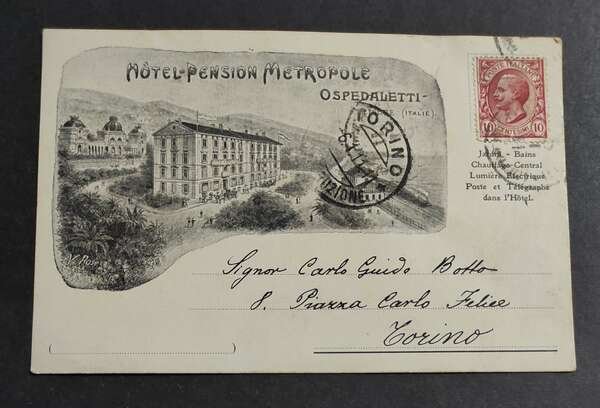 HÔTEL-PENSION METROPOLE
OSPEDALETTI-
(ITALIE).
POSTE ITALIANE
10 CENTESIMI 10
TORINO
Jardin - Bains
Chauffage-Central
Lumière Electrique
Poste et Télégraphe
dans l'Hôtel.
Signor Carlo Guido Botto
8. Piazza Carlo Felice
Torino